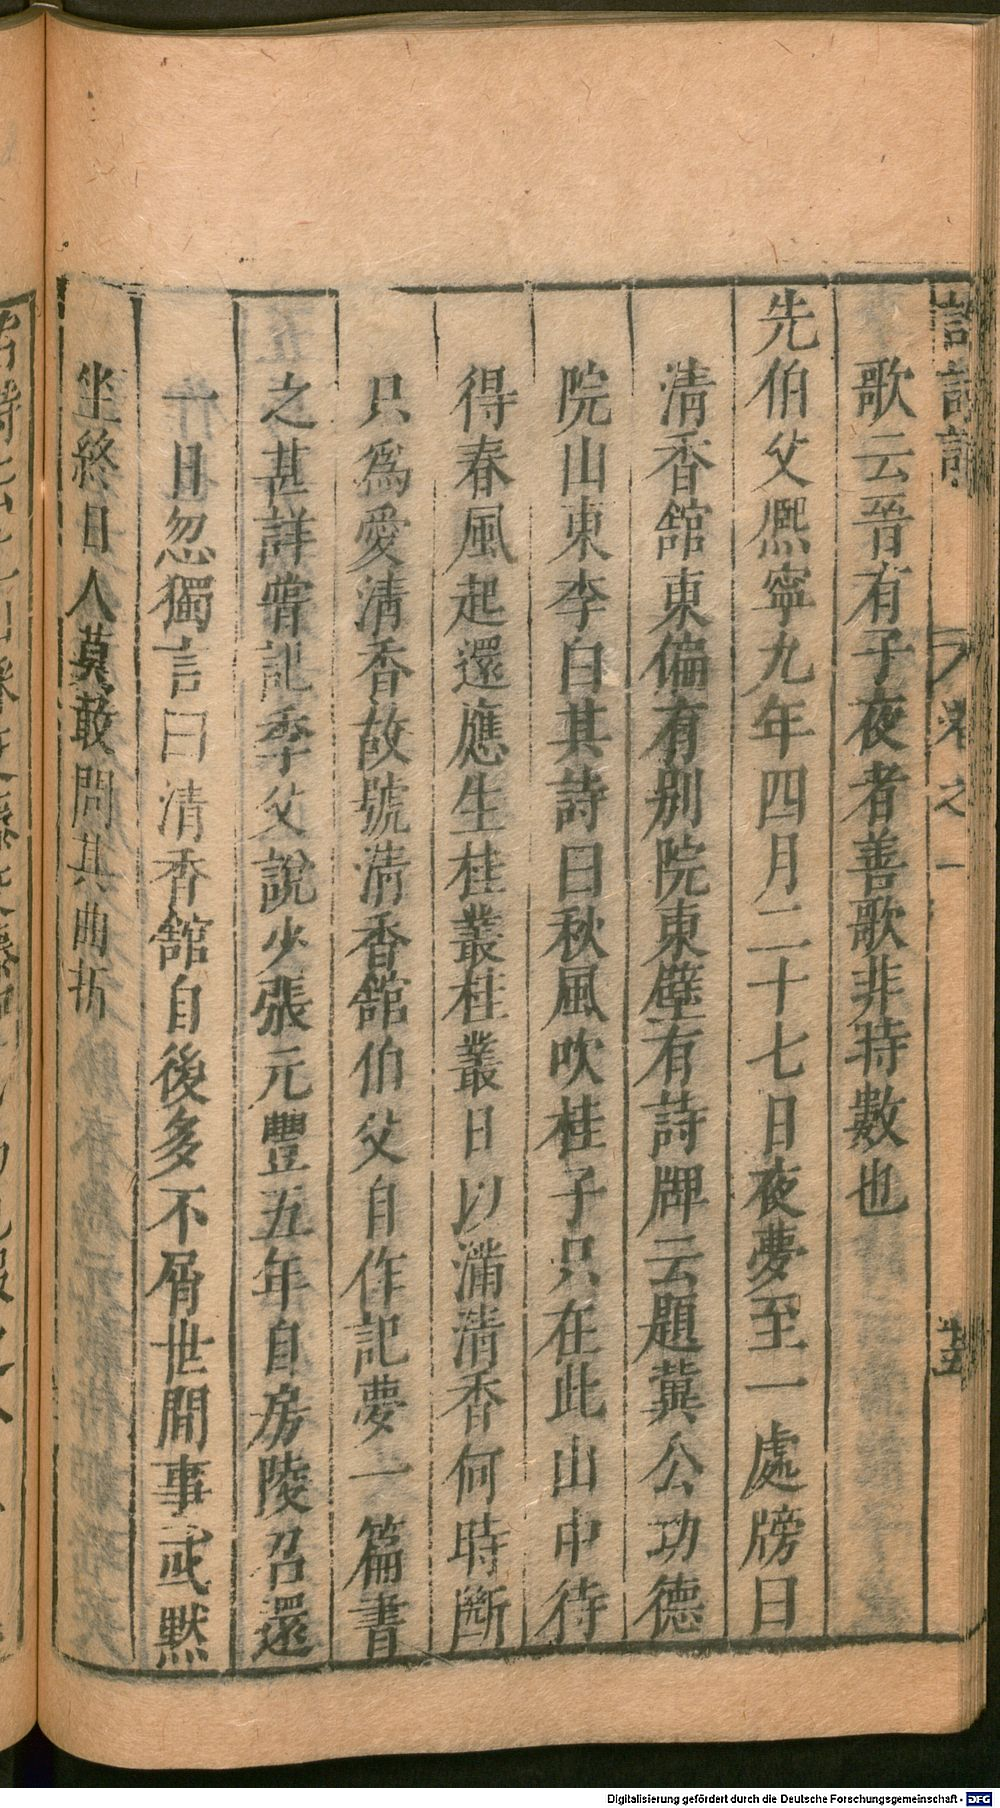 歌云晉有子夜者善歌非特數也
先伯父熈寧九年四月二十七日夜夢至一處牓曰
清香舘東偏有別院東壁有詩牌云題冀公功德
院山東李白其詩曰秋風吹桂子只在此山中待
得春風起還應生桂叢桂叢日以滿清香何時斷
只爲愛清香故號清香舘伯父自作記夢一篇書
之甚詳嘗記季父說少張元豐五年自房陵召還
一日忽獨言曰清香舘自後多不屑世間事或默
坐終日人莫敢問其曲折
卷之一
Digitalisierung gefördert durch die Deutsche Forschungsgemeinschaft - DFG